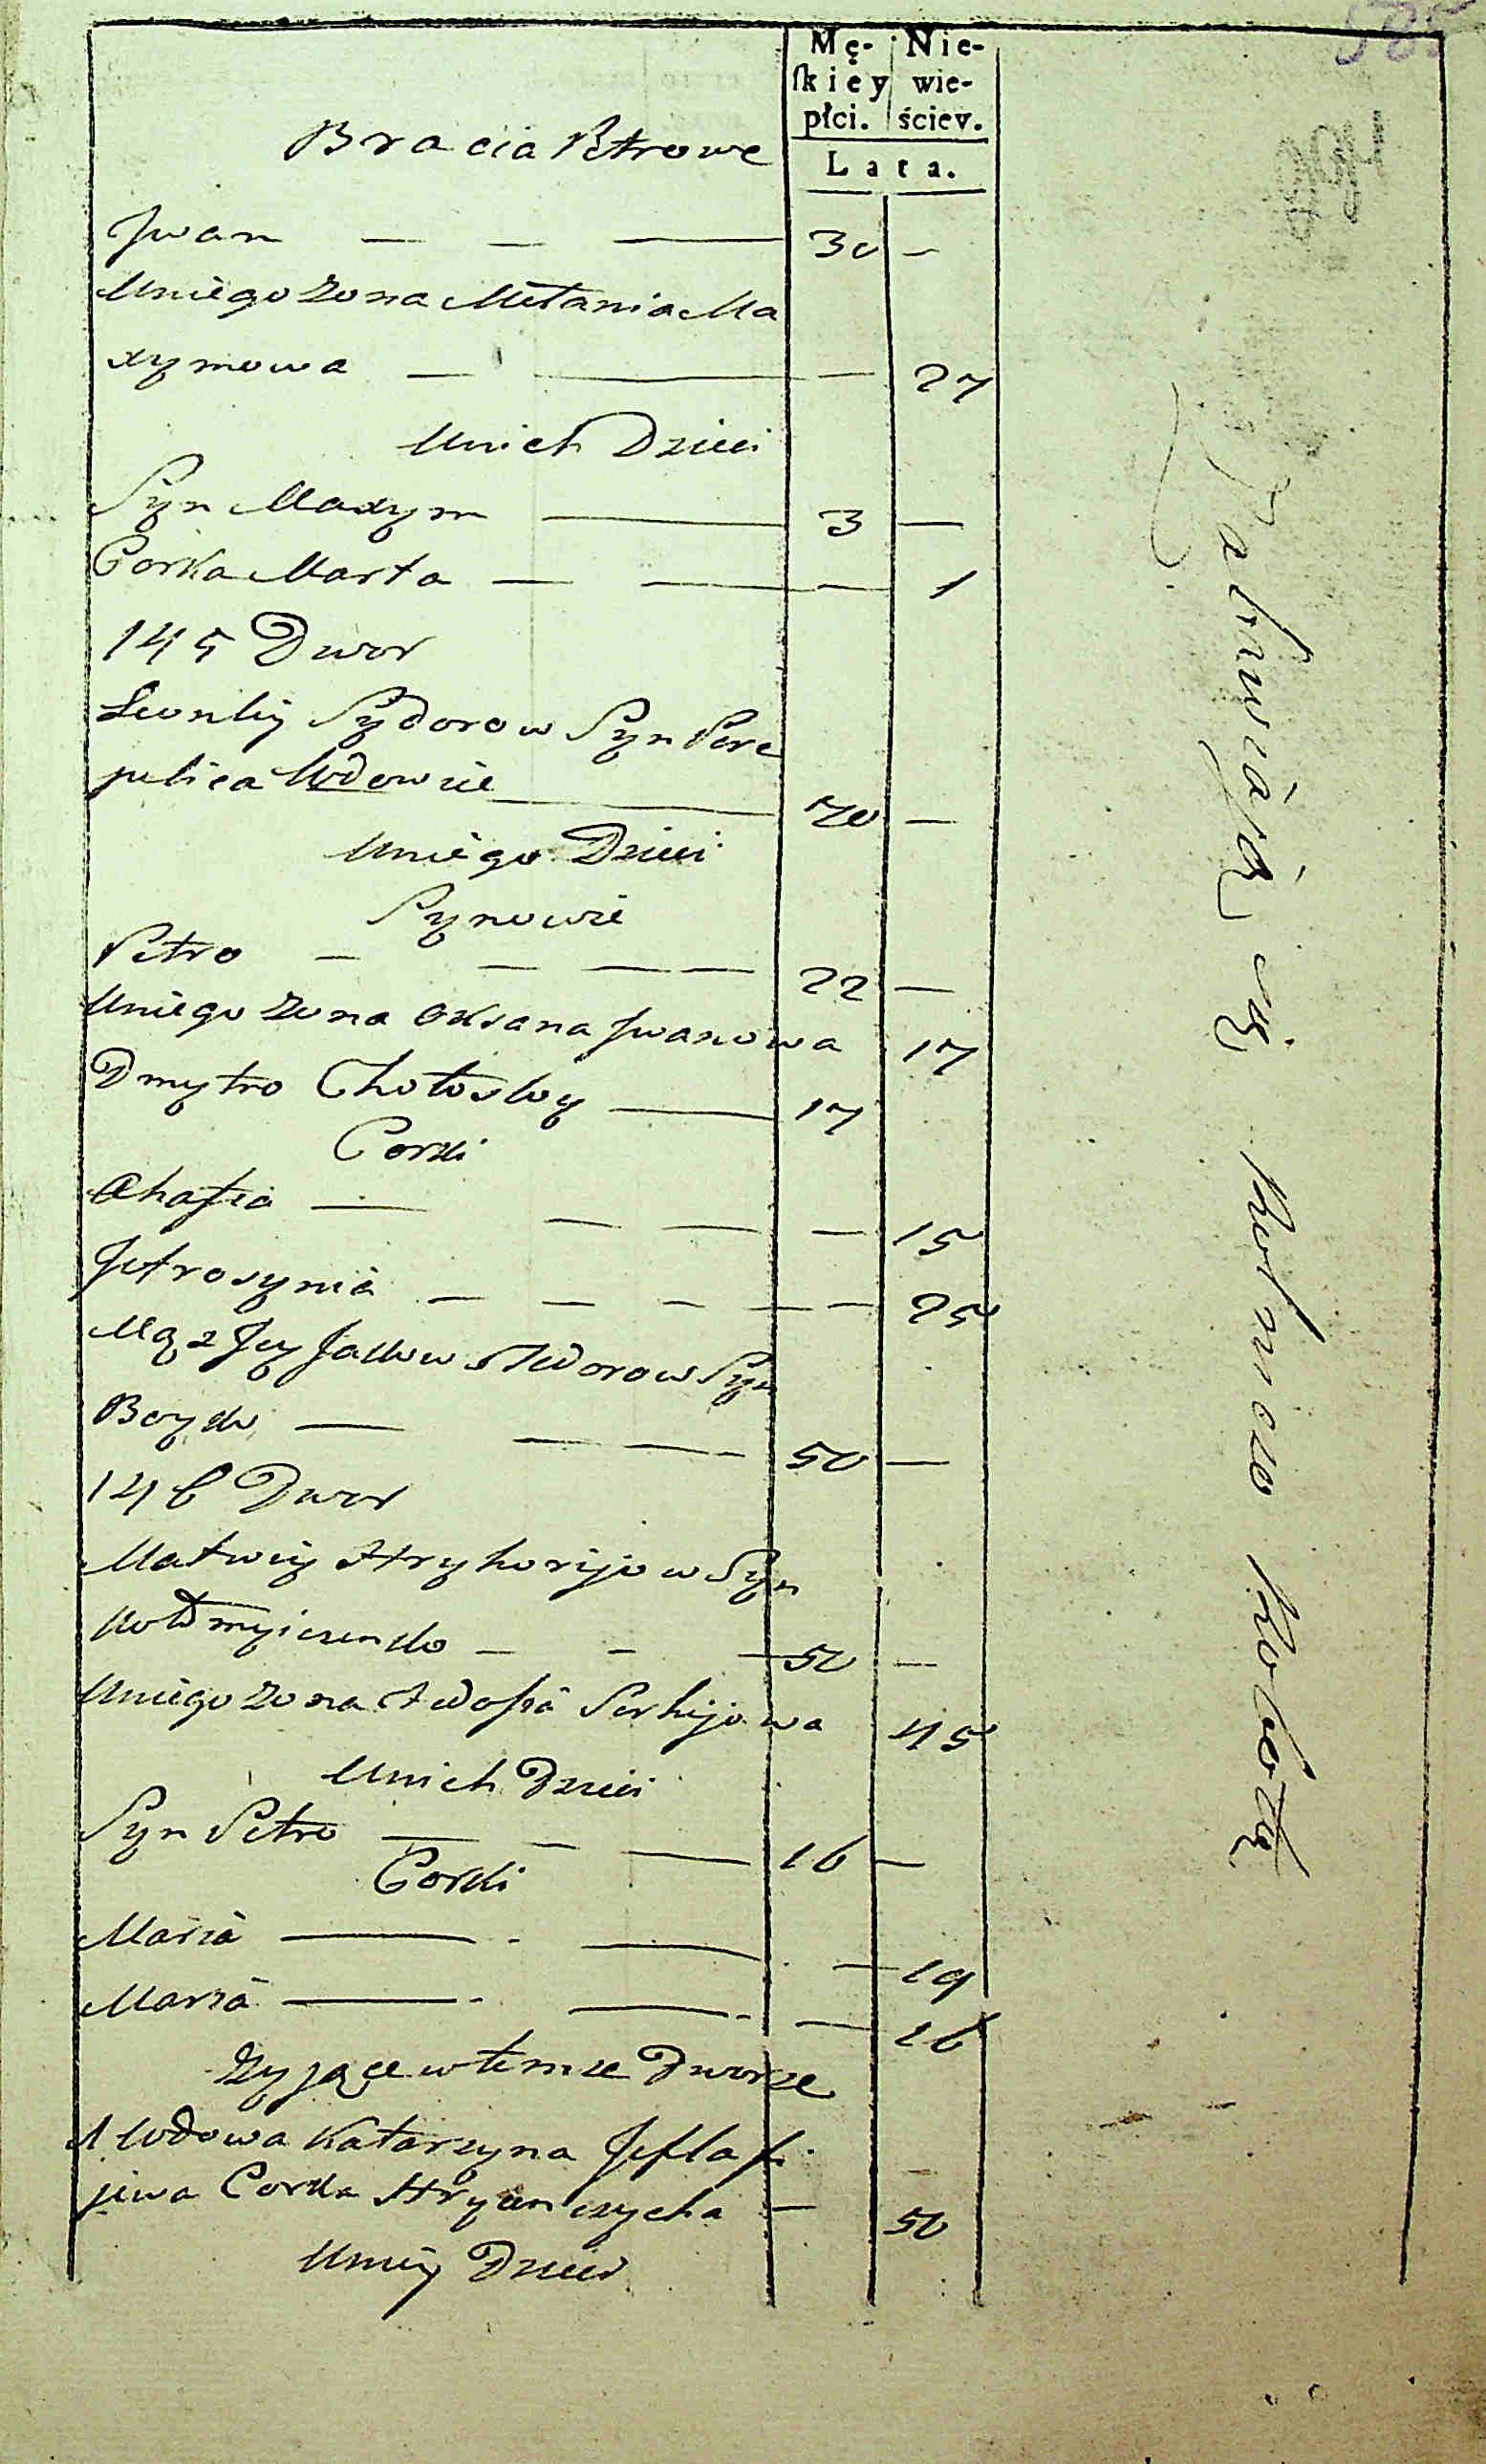 585
994
Mę-
ſkiey
płci.
Nie-
wie-
ściey.
Lata.
Bracia Petrowe
Jwan — — — 30 —
Uniego Zona Mełania Ma
xymowa — — — 27
Unich Dzieci
Syn Maxym — 3 —
Corka Marta — — — 1
145 Dwor
Leontiy Sydorow Syn Pere
pelica Wdowiec — 70 —
Uniego Dzieci
Synowie
Petro — — — — 22 —
Uniego Zona Oxsana Jwanowa 17
Dmytro Chołosty — 17
Corki
Ahafia — — — — 15
Jefrosynia — — — — — 25
Mąż Jey Jakow Fedorow Syn
Boyko — — — — 50 —
146 Dwor
Matwiy Hryhorijow Syn
Kołomyiczenko — — — 50 —
Uniego Zona Fedosia Serhijowa 45
Unich Dzieci
Syn Petro — — — 16 —
Corki
Maria — — — 19
Maria — — — 16
Zyjące w temze Dworze
1 Wdowa Katarzyna Jefta
jewa Corka Hrycenczycha — 50
Uniey Dzieci
Zabawiają się Rolniczo Robotą